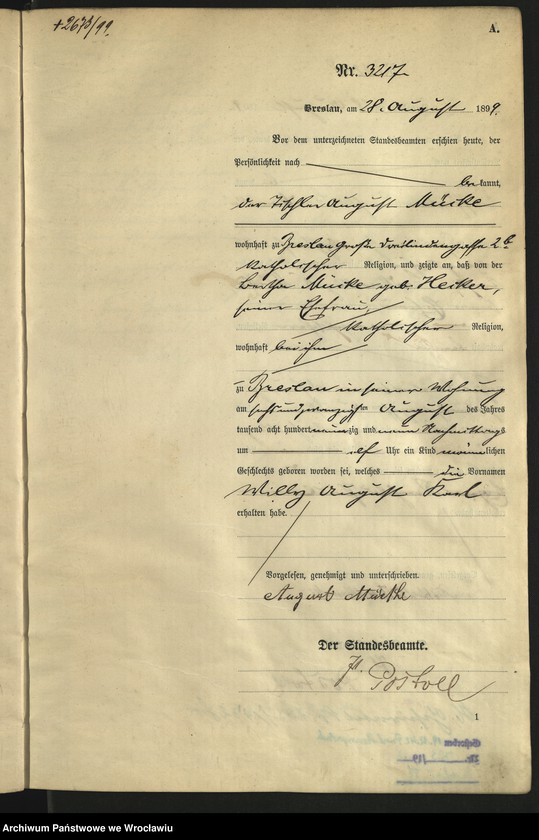 +2673/99.
A.
Nr. 3217
Breslau, am 28. August 1899.
Vor dem unterzeichneten Standesbeamten erschien heute, der
Persönlichkeit nach
bekannt,
der Tischler August Mücke
wohnhaft zu Breslau Große Dreilindengasse 2
katholischer Religion, und zeigte an, daß von der
Bertha Mücke geb. Hecker,
seiner Ehefrau,
katholischer Religion,
wohnhaft bei ihm
zu Breslau in seiner Wohnung
am sechsundzwanzigsten August des Jahres
tausend acht hundert neunzig und neun Nachmittags
um elf Uhr ein Kind männlichen
Geschlechts geboren worden sei, welches die Vornamen
Willy August Karl
erhalten habe.
Vorgelesen, genehmigt und unterschrieben.
August Mücke
Der Standesbeamte.
1
Archiwum Państwowe we Wrocławiu